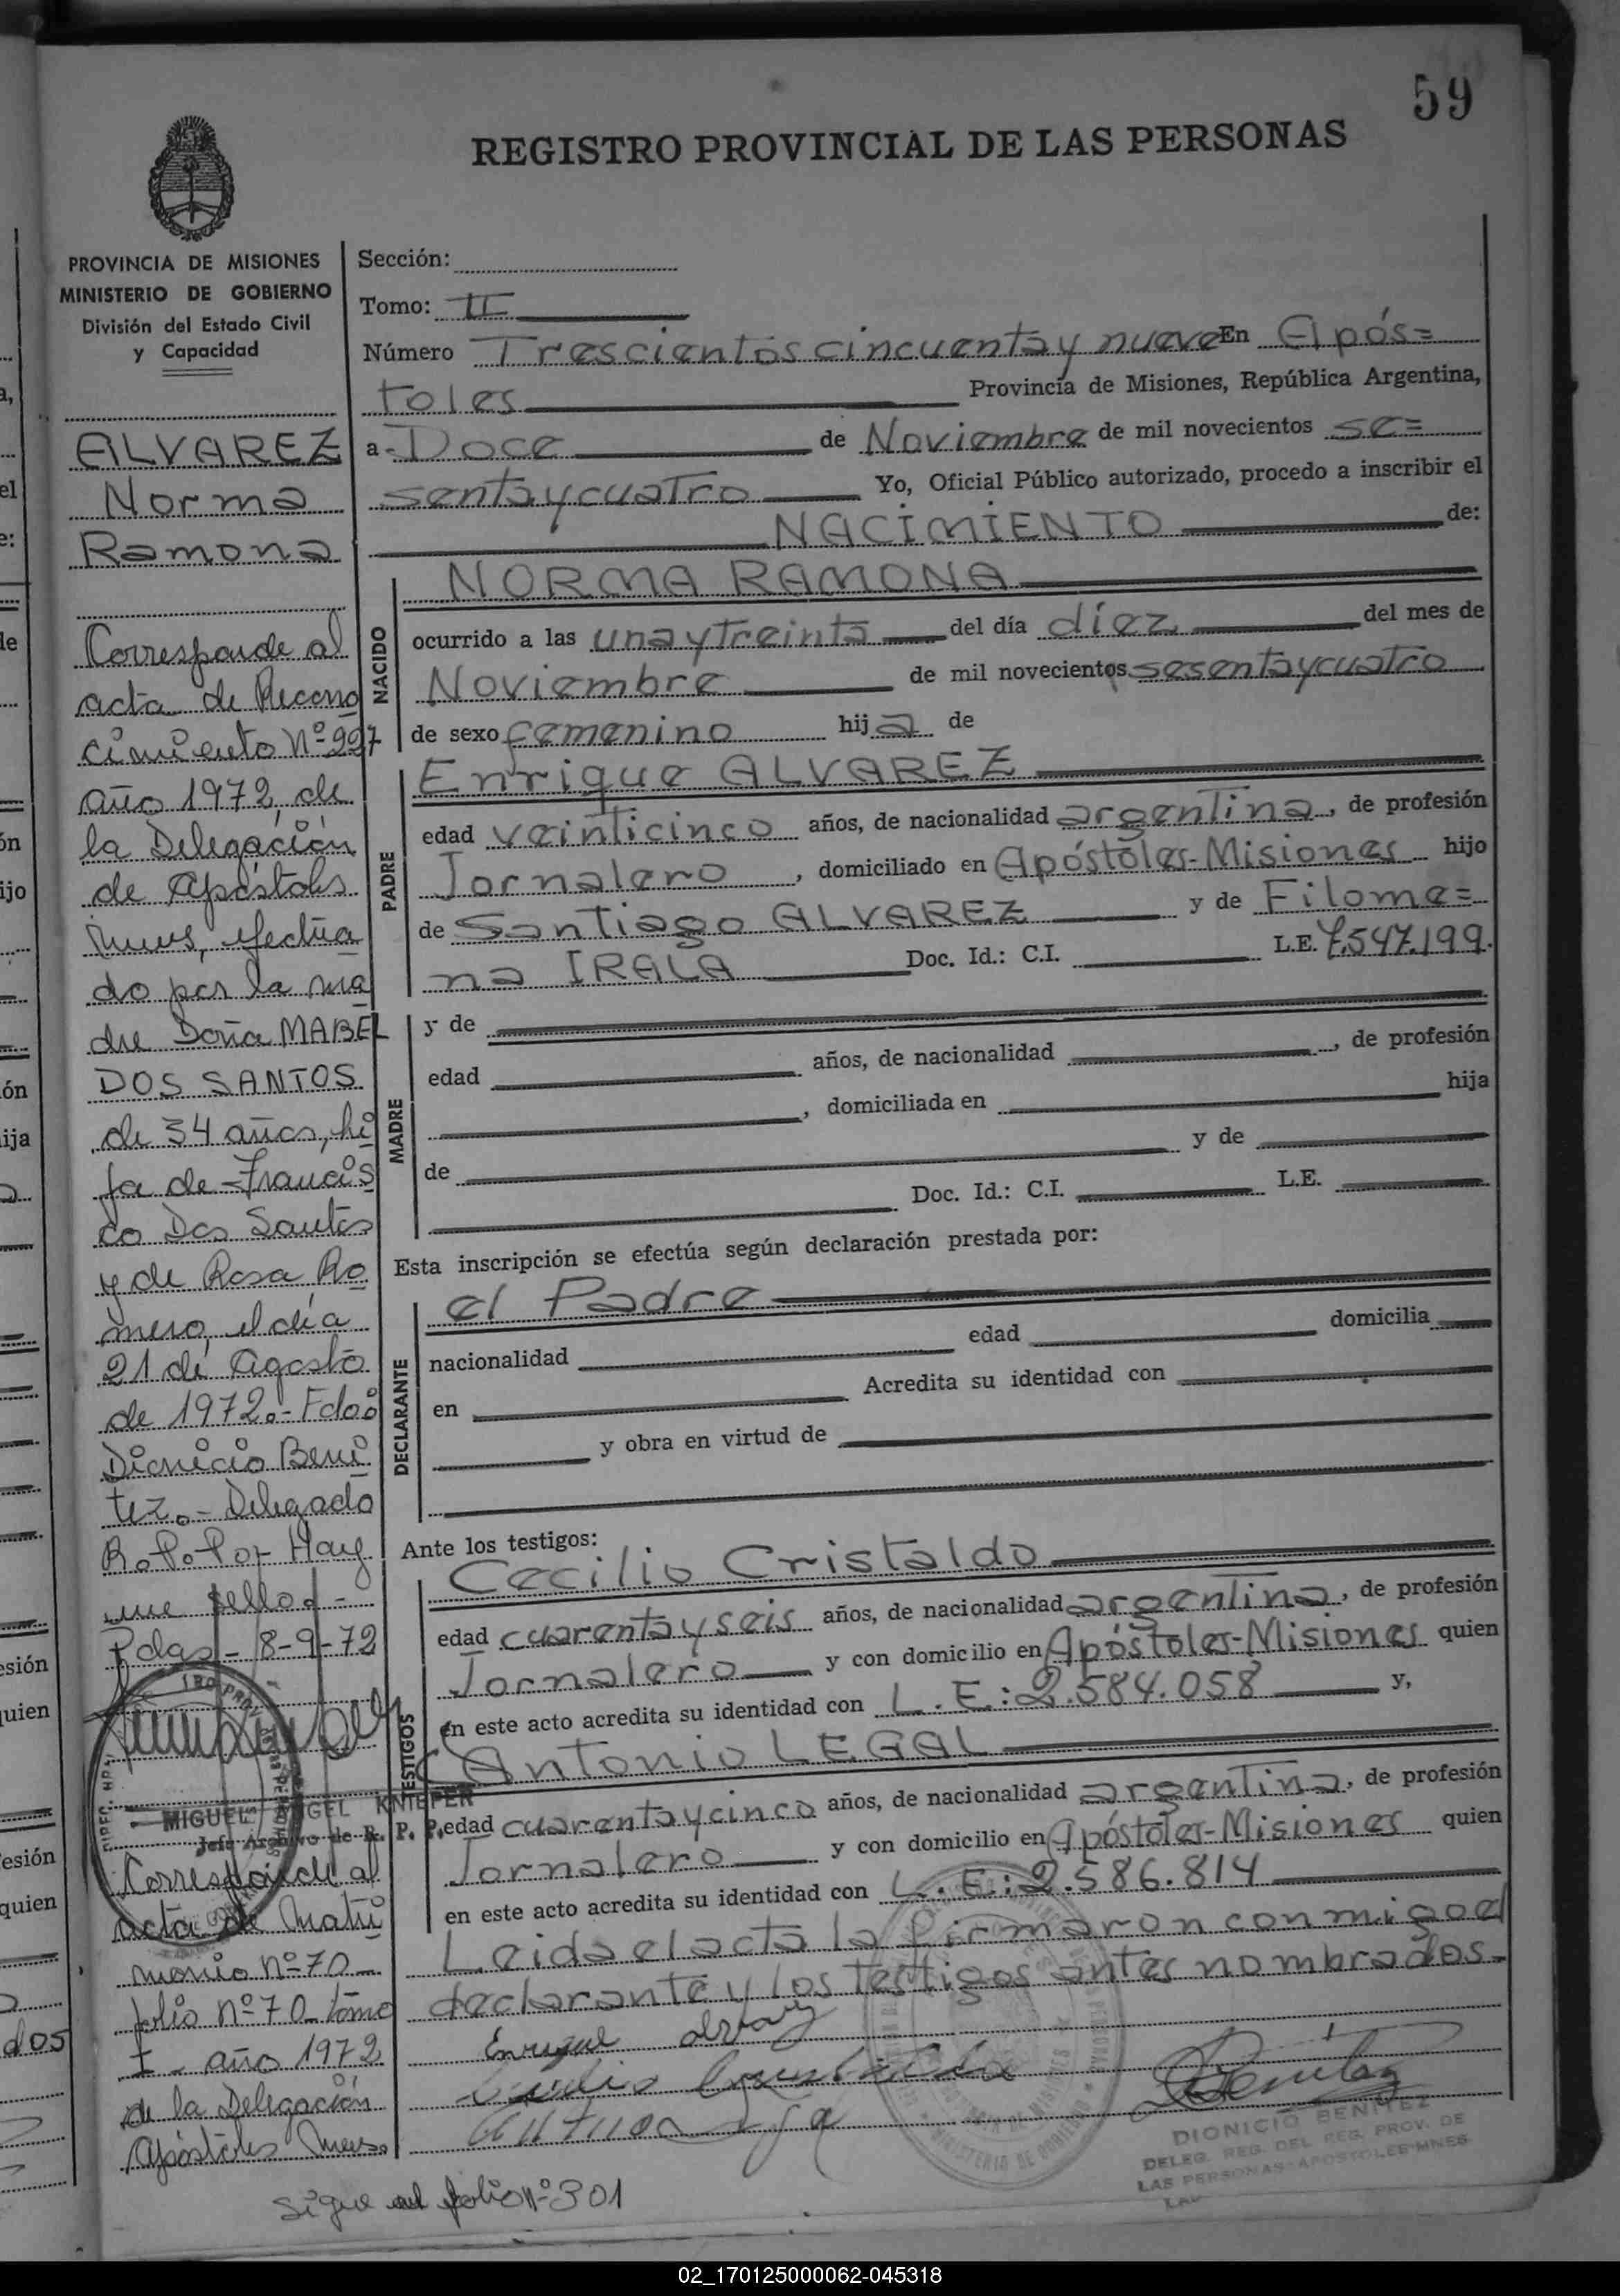 59
REGISTRO PROVINCIAL DE LAS PERSONAS
PROVINCIA DE MISIONES
MINISTERIO DE GOBIERNO
División del Estado Civil
y Capacidad
ALVAREZ
Norma
Ramona
Corresponde al
acta de Recono
cimiento Nº 227
año 1972, de
la Delegación
de Apóstoles
Mnes, efectua
do por la ma
dre Doña MABEL
DOS SANTOS
de 34 años, hi
ja de Francis
co Dos Santos
y de Rosa Ro
mero, el día
21 de Agosto
de 1972.- Fdo:
Dionicio Beni
tez.- Delegado
R.P.P. Hay
un sello.-
Pdas.- 8-9-72
MIGUEL ANGEL KNIEPER
Jefe Archivo de R. P. P.
Corresponde al
acta de Matri
monio nº 70-
folio nº 70 tomo
I - año 1972
de la Delegación
Apóstoles Mnes.
Sección:
Tomo: II
Número Trescientos cincuenta y nueve En Após=
toles Provincia de Misiones, República Argentina,
a Doce de Noviembre de mil novecientos se=
senta y cuatro Yo, Oficial Público autorizado, procedo a inscribir el
NACIMIENTO de:
NACIDO
NORMA RAMONA
ocurrido a las una y treinta del día diez del mes de
Noviembre de mil novecientos sesenta y cuatro
de sexo femenino hija de
PADRE
Enrique ALVAREZ
edad veinticinco años, de nacionalidad argentina, de profesión
Jornalero, domiciliado en Apóstoles-Misiones hijo
de Santiago ALVAREZ y de Filome=
na IRALA Doc. Id.: C.I. L.E. 7.547.199.
MADRE
y de
edad años, de nacionalidad , de profesión
, domiciliada en hija
de y de
Doc. Id.: C.I. L.E.
Esta inscripción se efectúa según declaración prestada por:
DECLARANTE
el Padre
nacionalidad edad domicilia
en Acredita su identidad con
y obra en virtud de
Ante los testigos:
TESTIGOS
Cecilio Cristaldo
edad cuarenta y seis años, de nacionalidad argentina, de profesión
Jornalero y con domicilio en Apóstoles-Misiones quien
en este acto acredita su identidad con L.E.: 2.584.058 y,
Antonio LEGAL
edad cuarenta y cinco años, de nacionalidad argentina, de profesión
Jornalero y con domicilio en Apóstoles-Misiones quien
en este acto acredita su identidad con L.E.: 2.586.814
Leida el acta la firmaron conmigo el
declarante y los testigos antes nombrados-
Enrique
DBenitez
DIONICIO BENITEZ
DELEG. REG. DEL REG. PROV. DE
LAS PERSONAS-APOSTOLES-MNES
Sigue al folio nº 301
02_170125000062-045318